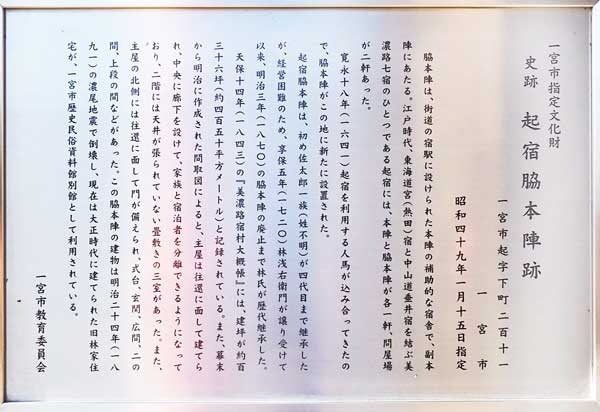 一宮市指定文化財
史跡 起宿脇本陣跡
一宮市起字下町二百十一
一宮市
昭和四十九年一月十五日指定
脇本陣は、街道の宿駅に設けられた本陣の補助的な宿舎で、副本
陣にあたる。江戸時代、東海道宮(熱田)宿と中山道垂井宿を結ぶ美
濃路七宿のひとつである起宿には、本陣と脇本陣が各一軒、問屋場
が二軒あった。
寛永十八年(一六四一)起宿を利用する人馬が込み合ってきたの
で、脇本陣がこの地に新たに設置された。
起宿脇本陣は、初め佐太郎一族(姓不明)が四代目まで継承した
が、経営困難のため、享保五年(一七二〇)林浅右衛門が譲り受けて
以来、明治三年(一八七〇)の脇本陣の廃止まで林氏が歴代継承した。
天保十四年(一八四三)の『美濃路宿村大概帳』には、建坪が約百
三十六坪(約四百五十平方メートル)と記録されている。また、幕末
から明治に作成された間取図によると、主屋は往還に面して建てら
れ、中央に廊下を設けて、家族と宿泊者を分離できるようになって
おり、二階には天井が張られていない畳敷きの三室があった。また、
主屋の北側には往還に面して門が備えられ、式台、玄関、広間、二の
間、上段の間などがあった。この脇本陣の建物は明治二十四年(一八
九一)の濃尾地震で倒壊し、現在は大正時代に建てられた旧林家住
宅が、一宮市歴史民俗資料館別館として利用されている。
一宮市教育委員会